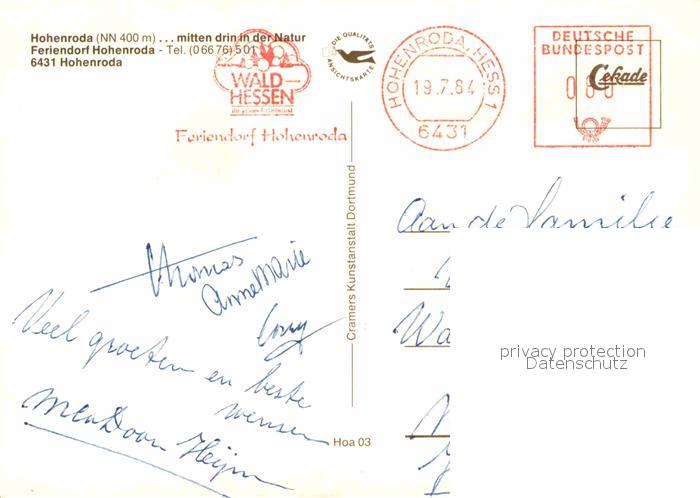 Hohenroda (NN 400 m) ... mitten drin in der Natur
Feriendorf Hohenroda - Tel. (0 66 76) 5 01
6431 Hohenroda
WALD-
HESSEN
Feriendorf Hohenroda
DIE QUALITÄTS
ANSICHTSKARTE
HOHENRODA, HESS 1
19.7.84
6431
DEUTSCHE
BUNDESPOST
080
Cekade
Cramers Kunstanstalt Dortmund
Aan de Familie
Wa
Thomas
AnneMarie
Veel groeten en beste
wensen
Hoa 03
privacy protection
Datenschutz